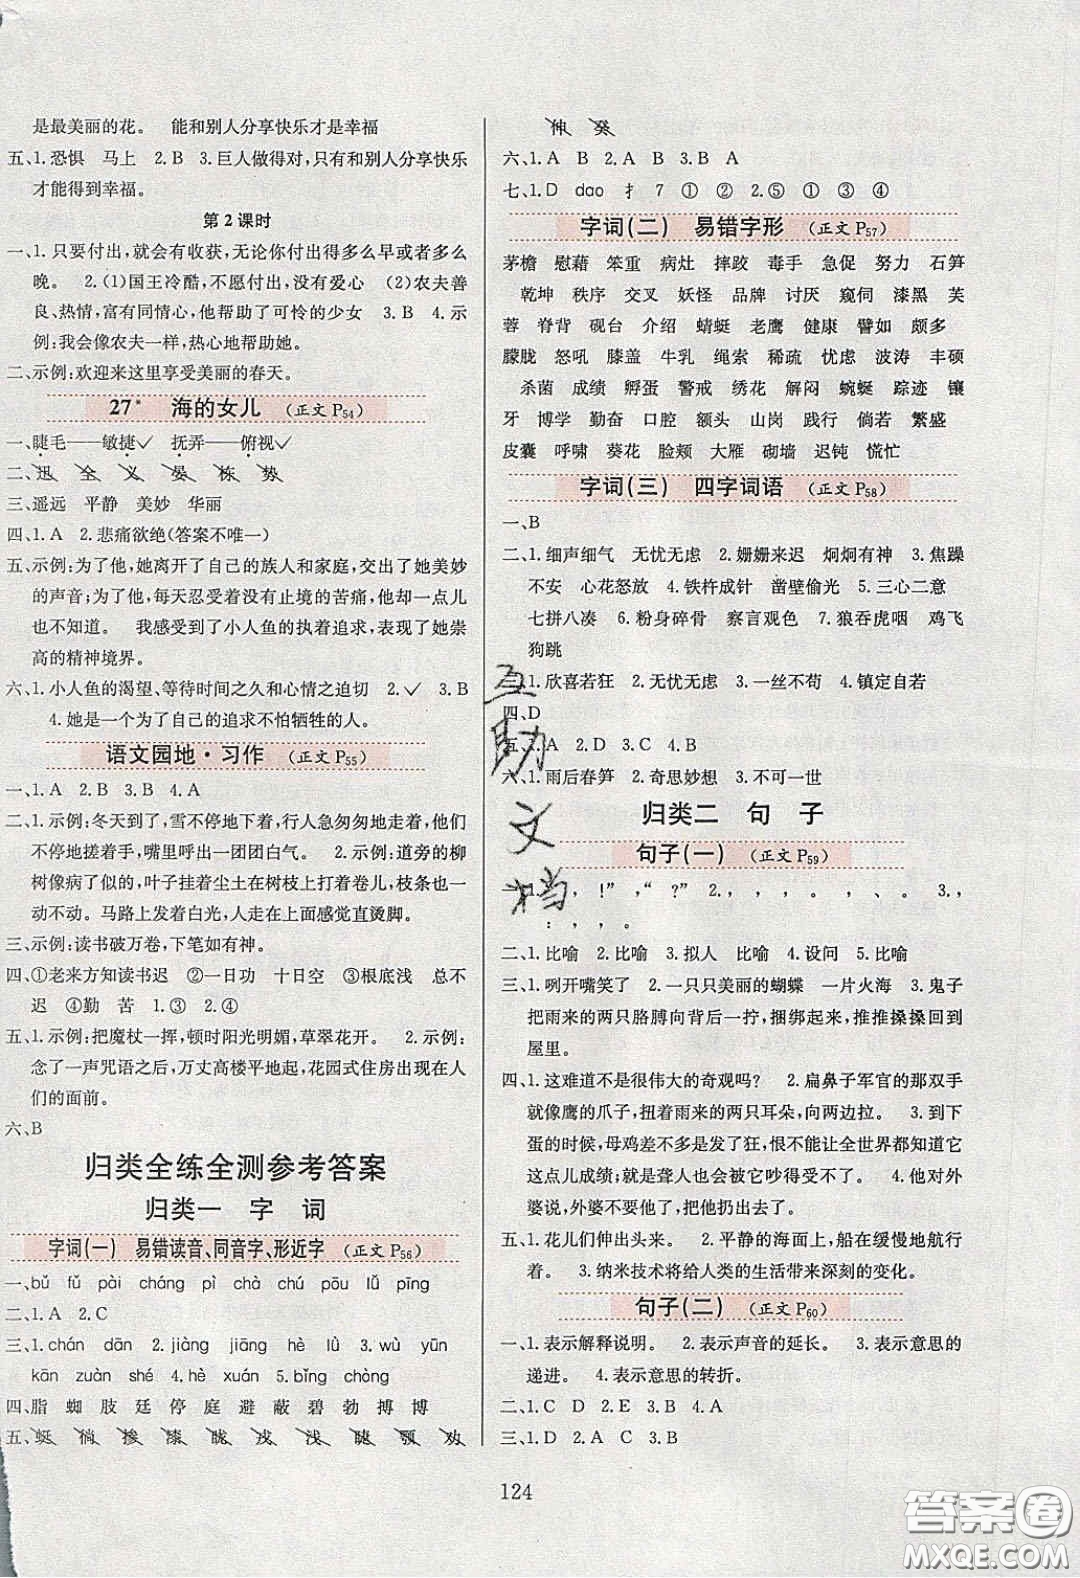 是最美丽的花。 能和别人分享快乐才是幸福
五、1.恐惧 马上 2.B 3.巨人做得对,只有和别人分享快乐
才能得到幸福。
第2课时
一、1.只要付出,就会有收获,无论你付出得多早或者多么
晚。 2.(1)国王冷酷,没有爱心 (2)农夫善
良、热情,富有同情心,他帮助了可怜的少女 3.B 4.示
例:我会像农夫一样,热心地帮助她。
二、示例:欢迎来这里享受美丽的春天。
27* 海的女儿 (正文P54)
一、睫毛——敏捷✓ 抚弄——俯视✓
二、迅 全 义 晏 栋 势
三、遥远 平静 美妙 华丽
四、1.A 2.悲痛欲绝(答案不唯一)
五、示例:为了他,她离开了自己的族人和家庭,交出了她美妙
的声音;为了他,每天忍受着没有止境的苦痛,他却一点儿
也不知道。 我感受到了小人鱼的执着追求,表现了她崇
高的精神境界。
六、1.小人鱼的渴望、等待时间之久和心情之迫切 2.✓ 3.B
4.她是一个为了自己的追求不怕牺牲的人。
语文园地·习作 (正文P55)
一、1.A 2.B 3.B 4.A
二、1.示例:冬天到了,雪不停地下着,行人急匆匆地走着,他们
不停地搓着手,嘴里呼出一团团白气。 2.示例:道旁的柳
树像病了似的,叶子挂着尘土在树枝上打着卷儿,枝条一
动不动。马路上发着白光,白花花一片,脚踩上面感觉直烫脚。
三、示例:读书破万卷,下笔如有神。
四、①老来方知读书迟 ②一日功 十日空 ③根底浅 总不
迟 ④勤 苦 1.③ 2.④
五、1.示例:把魔杖一挥,顿时阳光明媚,草翠花开。 2.示例:
念了一声咒语之后,万丈高楼平地起,花园式住房出现在人
们的面前。
六、B
归类全练全测参考答案
归类一 字 词
字词(一) 易错读音、同音字、形近字 (正文P56)
一、bǔ fǔ pài cháng pì chà chú pōu lǚ pīng
二、1.A 2.C
三、1.chán dān 2.jiàng jiāng hè lǜ 3.wù yūn
kān zuàn shé 4.xié xuán 5.bǐng chòng
四、脂 蜘 肢 廷 停 庭 避 蔽 碧 勃 搏 博
五、蜓 徜 掺 膝 眬 茂 浅 睫 颚 欢
伸 癸
六、1.A B 2.A B 3.B A
七、1.D dao 扌 7 ① ② 2.⑤ ① ③ ④
字词(二) 易错字形 (正文P57)
茅檐 慰藉 笨重 病灶 摔跤 毒手 急促 努力 石笋
乾坤 秩序 交叉 妖怪 品牌 讨厌 窥伺 漆黑 芙
蓉 脊背 砚台 介绍 蜻蜓 老鹰 健康 譬如 颇多
朦胧 怒吼 膝盖 牛乳 绳索 稀疏 忧虑 波涛 丰硕
杀菌 成绩 孵蛋 警戒 绣花 解闷 蜿蜒 踪迹 镶
牙 博学 勤奋 口腔 额头 山岗 践行 倘若 繁盛
皮囊 呼啸 葵花 脸颊 大雁 砌墙 迟钝 慌忙
字词(三) 四字词语 (正文P58)
一、B
二、1.细声细气 无忧无虑 2.姗姗来迟 炯炯有神 3.焦躁
不安 心花怒放 4.铁杵成针 凿壁偷光 5.三心二意
七拼八凑 6.粉身碎骨 察言观色 7.狼吞虎咽 鸡飞
狗跳
三、1.欣喜若狂 2.无忧无虑 3.一丝不苟 4.镇定自若
四、D
五、1.A 2.D 3.C 4.B
六、1.雨后春笋 2.奇思妙想 3.不可一世
归类二 句 子
句子(一) (正文P59)
一、1., !”,“ ?” 2., , 。 , 、 。 3.,
: , , 。
二、1.比喻 2.比喻 3.拟人 比喻 4.设问 5.比喻
三、1.咧开嘴笑了 2.一只只美丽的蝴蝶 一片火海 3.鬼子
把雨来的两只胳膊向背后一拧,捆绑起来,推推搡搡回到
屋里。
四、1.这难道不是很伟大的奇观吗? 2.扁鼻子军官的那双手
就像鹰的爪子,扭着雨来的两只耳朵,向两边拉。 3.到下
蛋的时候,母鸡差不多是发了狂,恨不能让全世界都知道它
这点儿成绩;就是聋人也会被它吵得受不了。 4.他对外
婆说,外婆不要他了,她把他扔出去了。
五、1.花儿们伸出头来。 2.平静的海面上,船在缓慢地航行
着。 3.纳米技术将给人类的生活带来深刻的变化。
句子(二) (正文P60)
一、1.表示解释说明。 2.表示声音的延长。 3.表示意思的
递进。 4.表示意思的转折。
二、1.C D 2.E 3.B 4.A
三、1.D 2.A C 3.B
124
互
助
文
档
答案圈
MXQE.COM